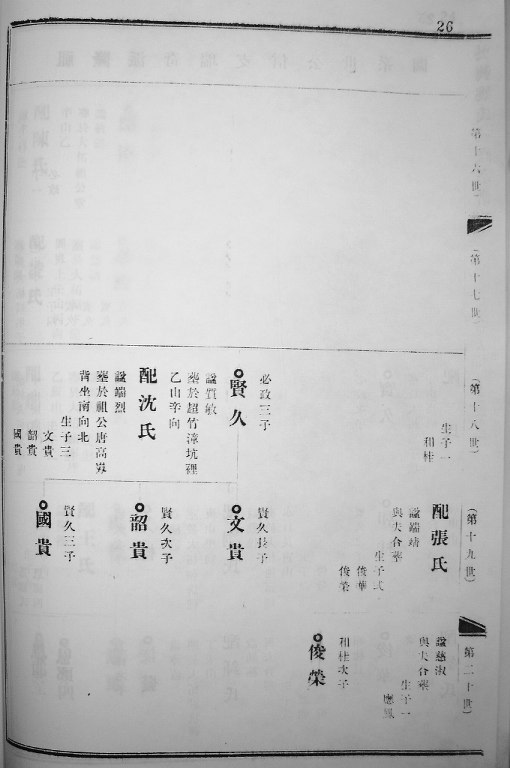 26
第十六世
(第十七世)
(第十八世)
生子一
和桂
必政三子
賢久
諡質敏
塟於超竹漳坑裡
乙山辛向
配沈氏
諡端烈
塟於祖公唐高崁
背坐南向北
生子三
文貴
韶貴
國貴
(第十九世)
配張氏
諡端靖
與夫合塟
生子弍
俊華
俊榮
賢久長子
文貴
賢久次子
韶貴
賢久三子
國貴
第二十世)
諡慈淑
與夫合塟
生子一
應鳳
和桂次子
俊榮